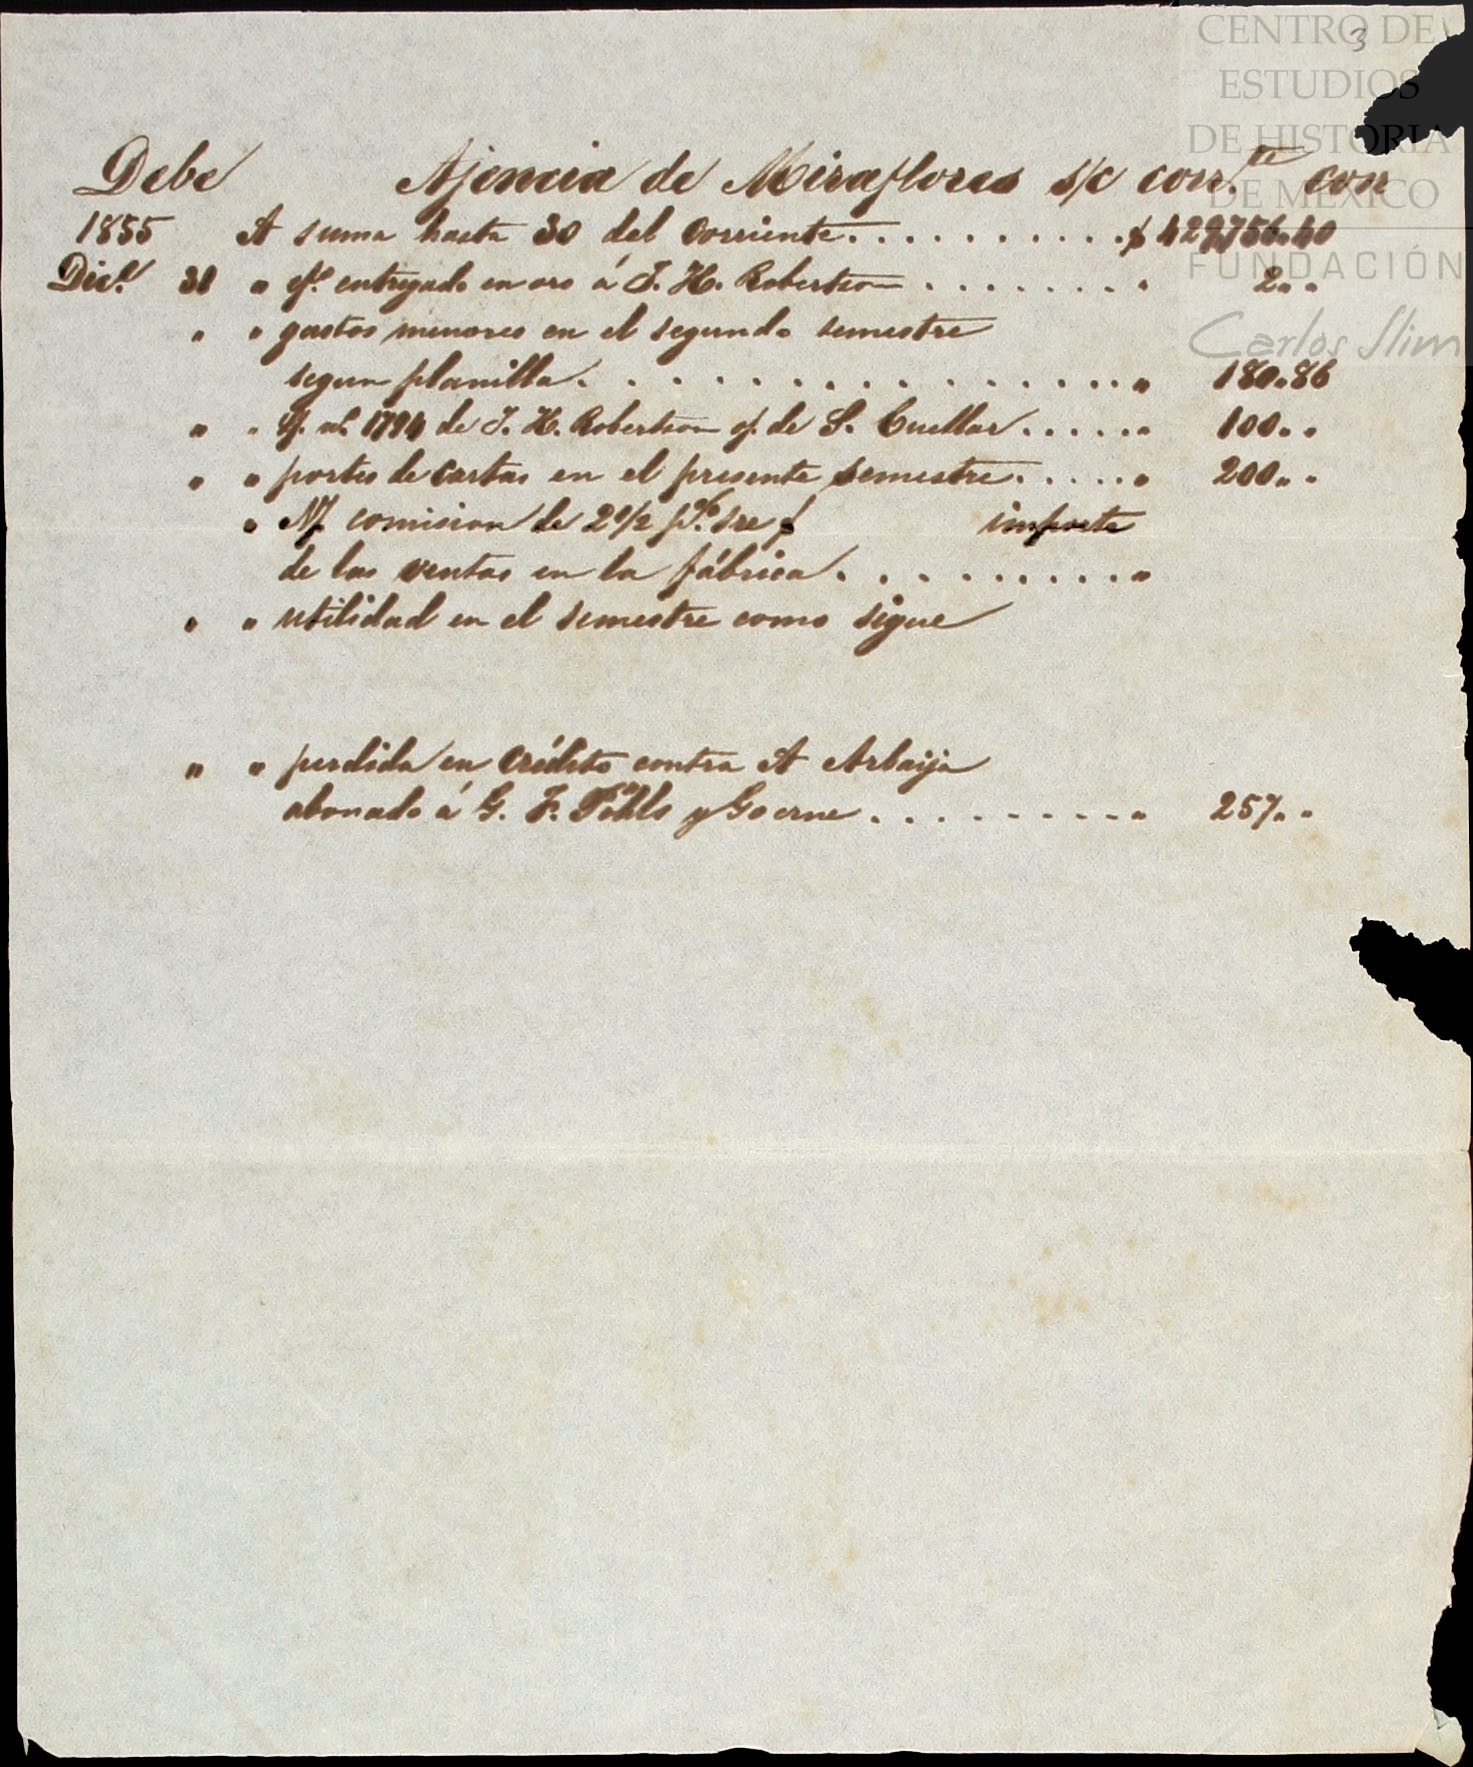 CENTRO DE
3
ESTUDIOS
DE HISTORIA
DE MÉXICO
FUNDACIÓN
Carlos Slim
Debe Ajencia de Miraflores s/c corr.te con
1855 A suma hasta 30 del corriente . . . . . . . . . . $ 429,756.40
Dic.e 31 " ef.o entregado en oro á J. H. Robertson . . . . . . . . " 2 " "
" " gastos menores en el segundo semestre
segun planilla . . . . . . . . . . . . . . . . " 180.86
" " n.o 1794 de J. H. Robertson of. de S. Cuellar . . . . . " 100 " "
" " portes de cartas en el presente semestre . . . . . " 200 " "
" N/ comision de 2 1/2 p.% sre $ importe
de las ventas en la fábrica . . . . . . . . . "
" " utilidad en el semestre como sigue
" " perdida en crédito contra A Arbaija
abonado á G. F. Pöhls y Goerne . . . . . . . . . " 257 " "